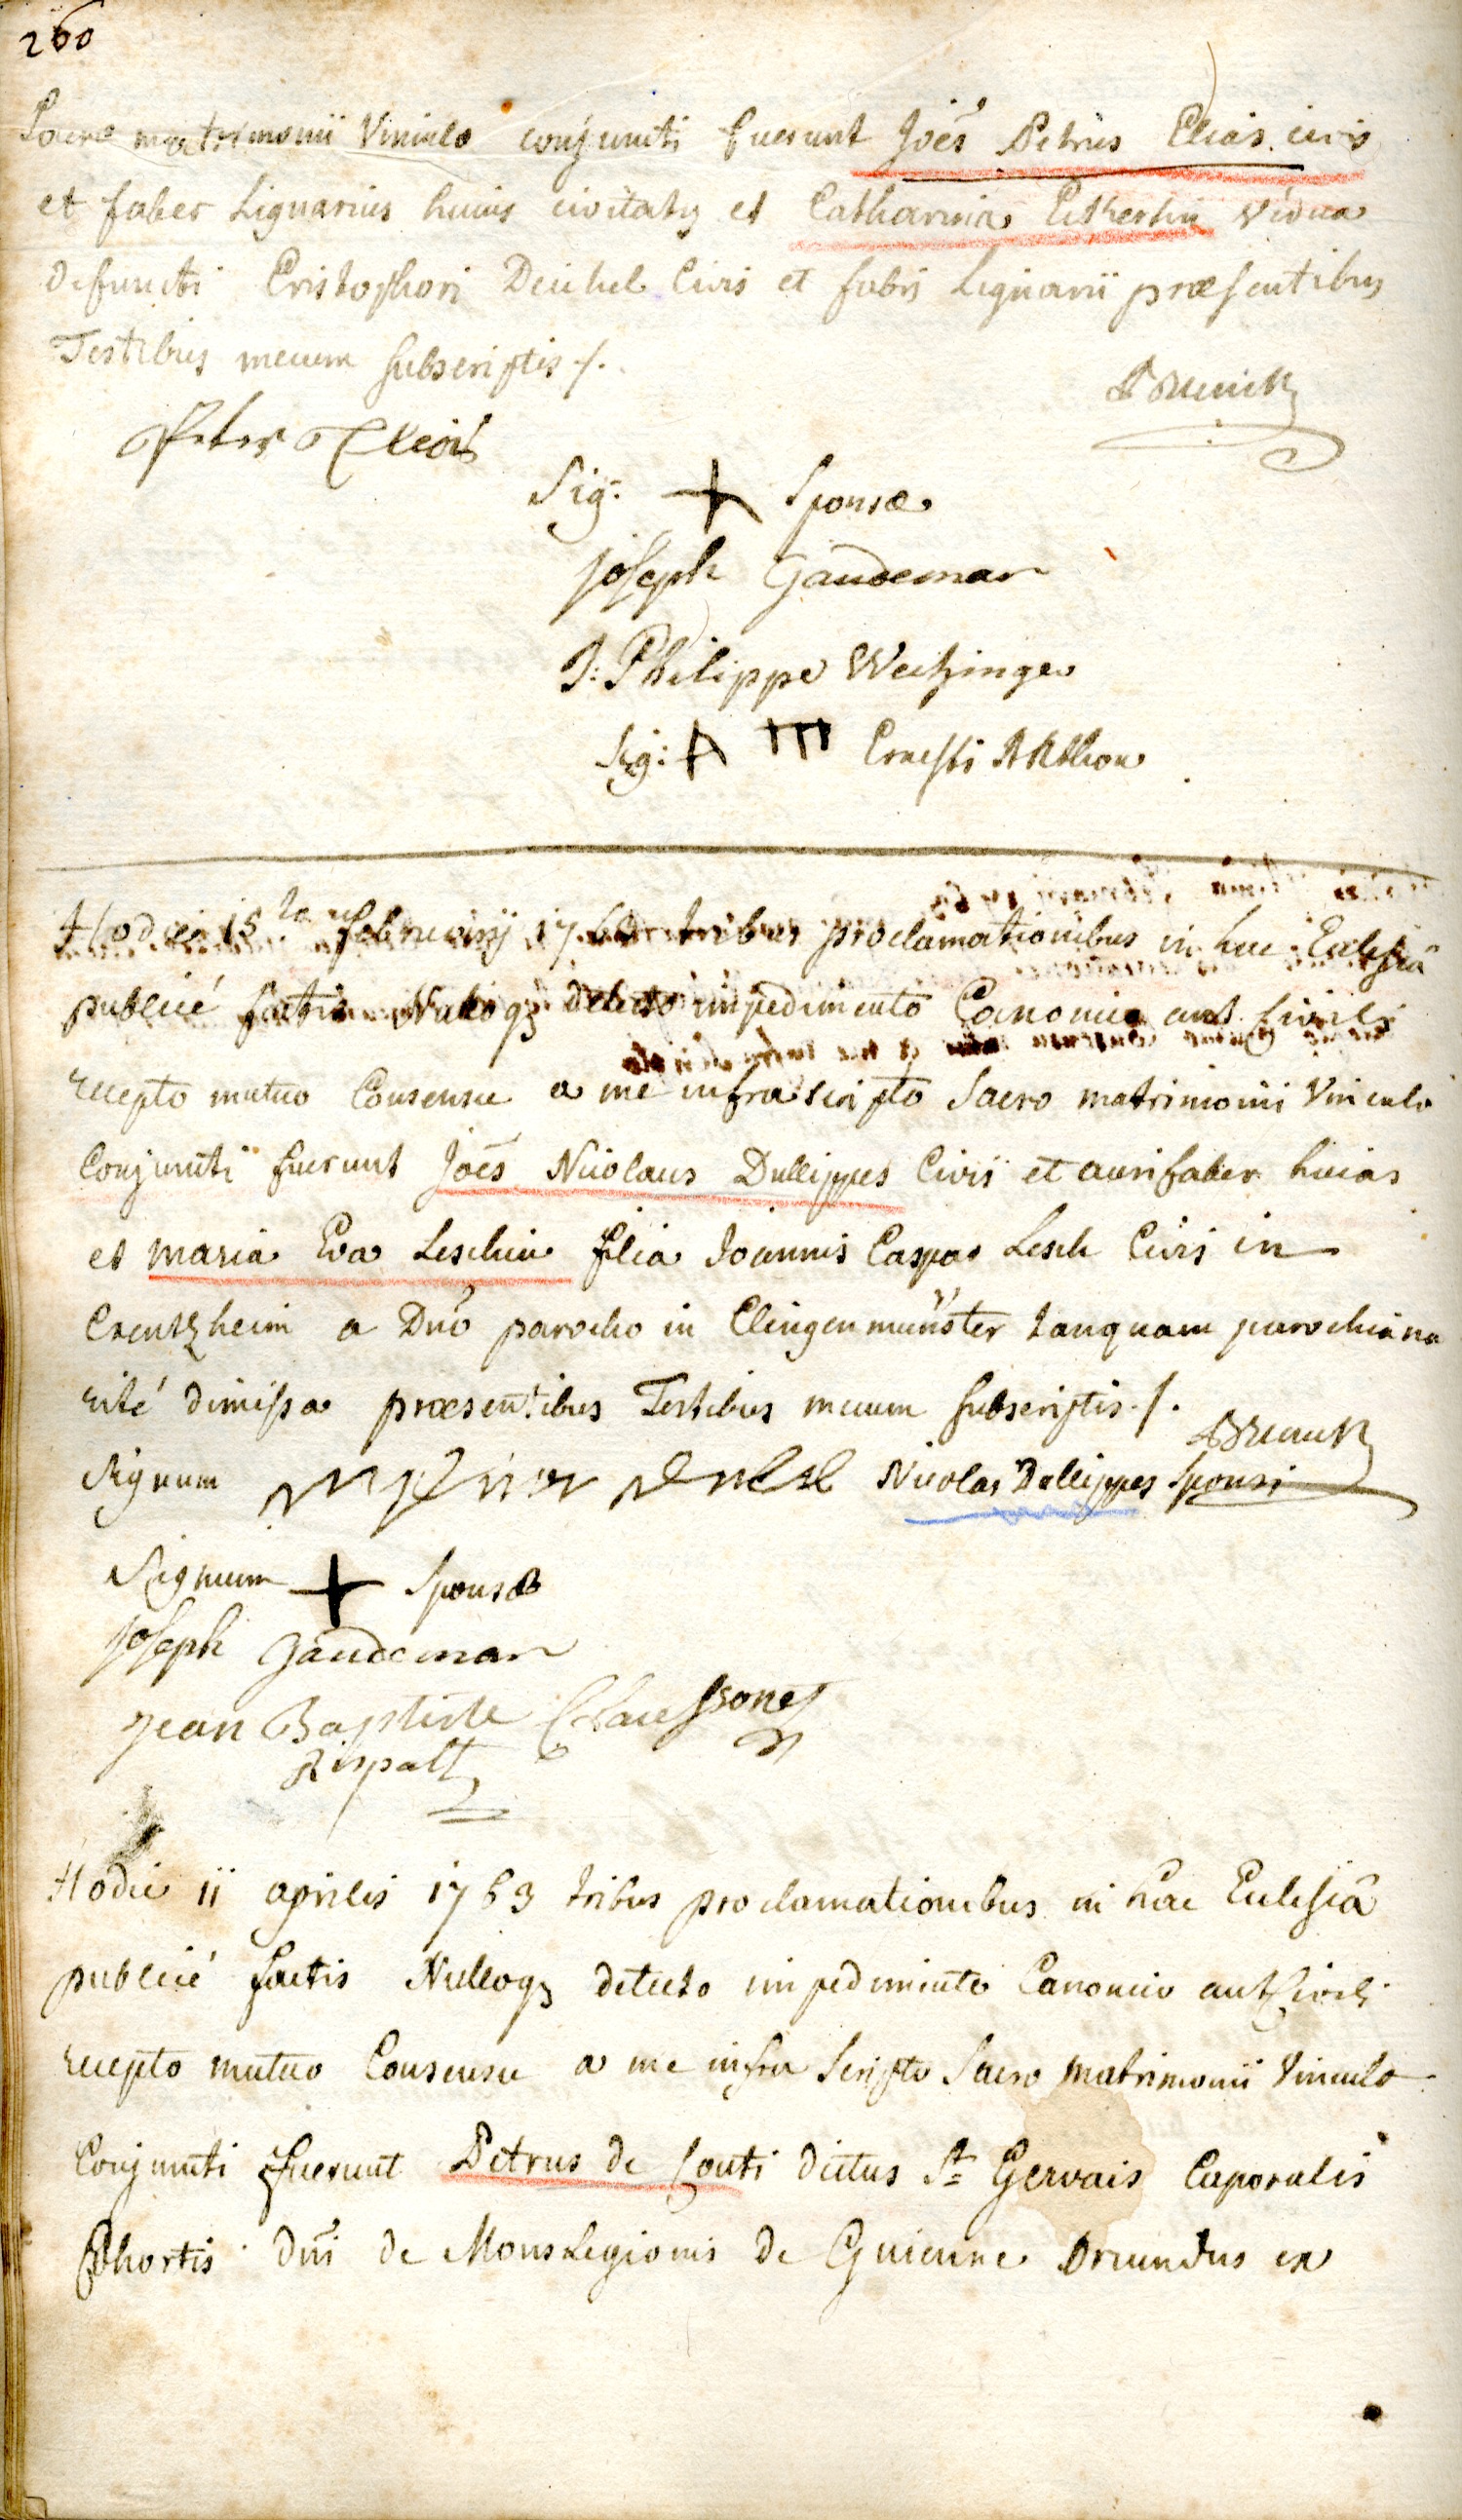 260
Sacro matrimonii Vinculo conjuncti fuerunt Joês Petrus Elias civis
et faber Lignarius huius civitatis et Catharina vidua
defuncti Cristophori Deichel Civis et fabri Lignarii præsentibus
Testibus mecum subscriptis /.
Peter Elias
Sig: + Sponsæ
Joseph Gaudemar
J: Philippe Weitzinger
Sig: Ernesti
Hodie 15ta februarij 1763 tribus proclamationibus in hac Eclesiâ
publicé factis Nulloqz detecto impedimento Canonico aut Civili
recepto mutuo Consensu a me infra scripto Sacro matrimonii Vinculo
Conjuncti fuerunt Joês Nicolaus Dellippes Civis et aurifaber huias
et Maria Eva Leschin filia Joannis Caspar Lesch Civis in
Creutzheim a Dnô parocho in Clingenmünster tanquam parochiana
rité dimissa præsentibus Testibus mecum subscriptis /.
Signum Nicolas Dellippes Sponsi
Signum + Sponsæ
Joseph Gaudemar
Jean Baptiste Chaussonet
Rispalt
Hodie ii aprilis 1763 tribus proclamationibus in hac Eclesiâ
publicé factis Nulloqz detecto impedimento Canonico aut Civili
recepto mutuo Consensu a me infra Scripto Sacro Matrimonii Vinculo
Conjuncti fuerunt Petrus de Conti dictus St Gervais Caporalis
Cohortis Dni de Mons Legionis de Guienne Oriundus ex